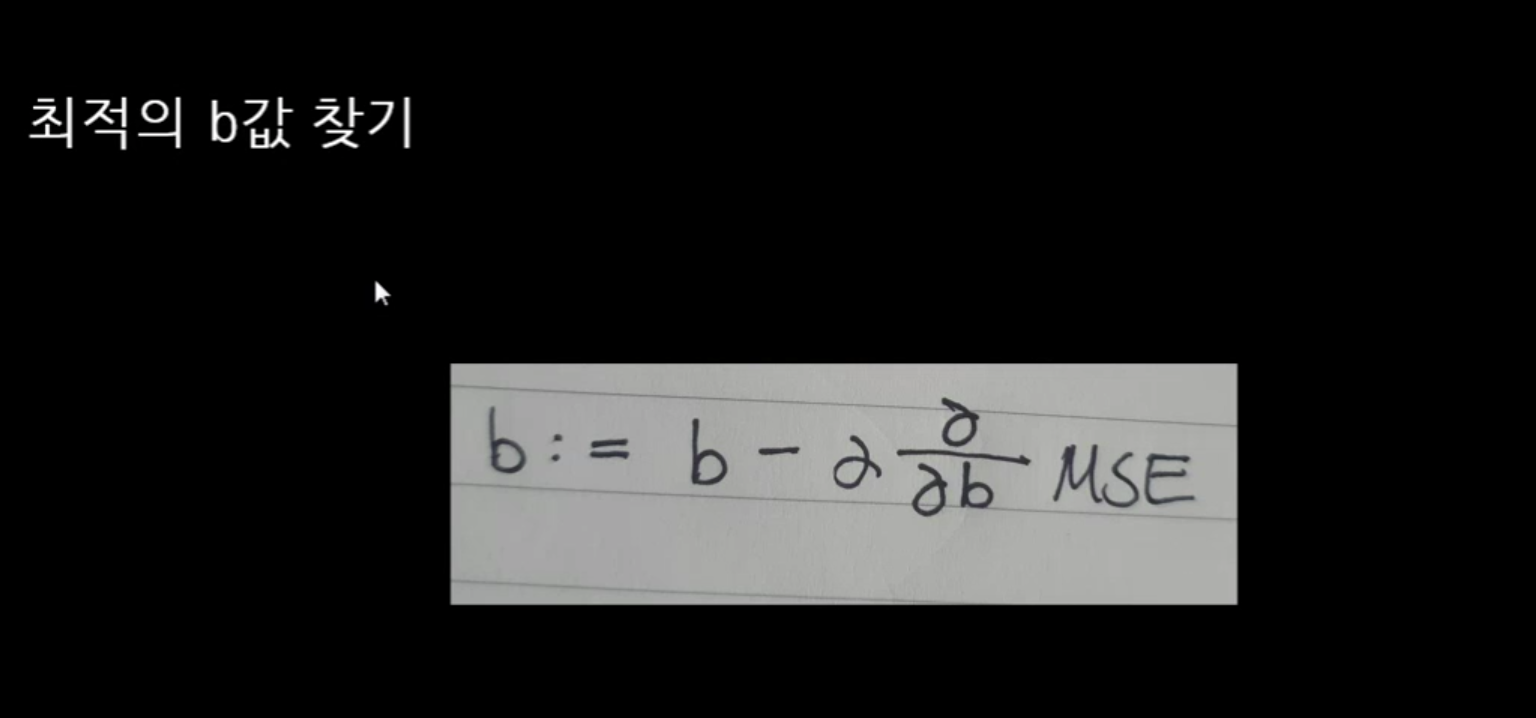 최적의 b값 찾기
b := b - α ∂/∂b MSE